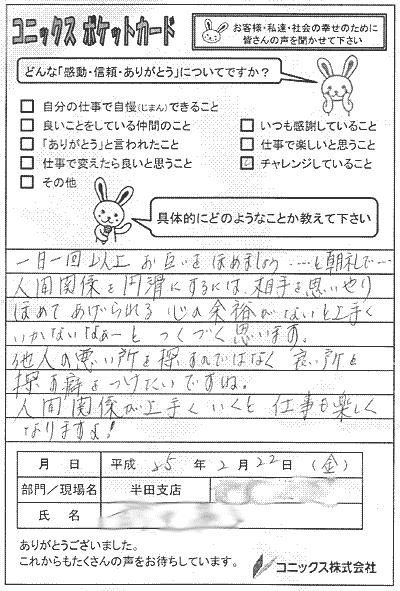 コニックス ポケットカード
お客様・私達・社会の幸せのために
皆さんの声を聞かせて下さい
どんな「感動・信頼・ありがとう」についてですか?
自分の仕事で自慢(じまん)できること
良いことをしている仲間のこと
いつも感謝していること
「ありがとう」と言われたこと
仕事で楽しいと思うこと
仕事で変えたら良いと思うこと
チャレンジしていること
その他
具体的にどのようなことか教えて下さい
一日一回以上 お互いをほめましょう……と朝礼で…
人間関係を円滑にするには、相手を思いやり
ほめてあげられる 心の余裕がないと上手く
いかないなぁーと つくづく思います。
他人の悪い所を探すのではなく 良い所を
探す癖をつけたいですね。
人間関係が上手くいくと 仕事も楽しく
なりますよ!
月 日 平成 25 年 2 月 22 日 (金)
部門/現場名 半田支店
氏 名
ありがとうございました。
これからもたくさんの声をお待ちしています。
コニックス株式会社